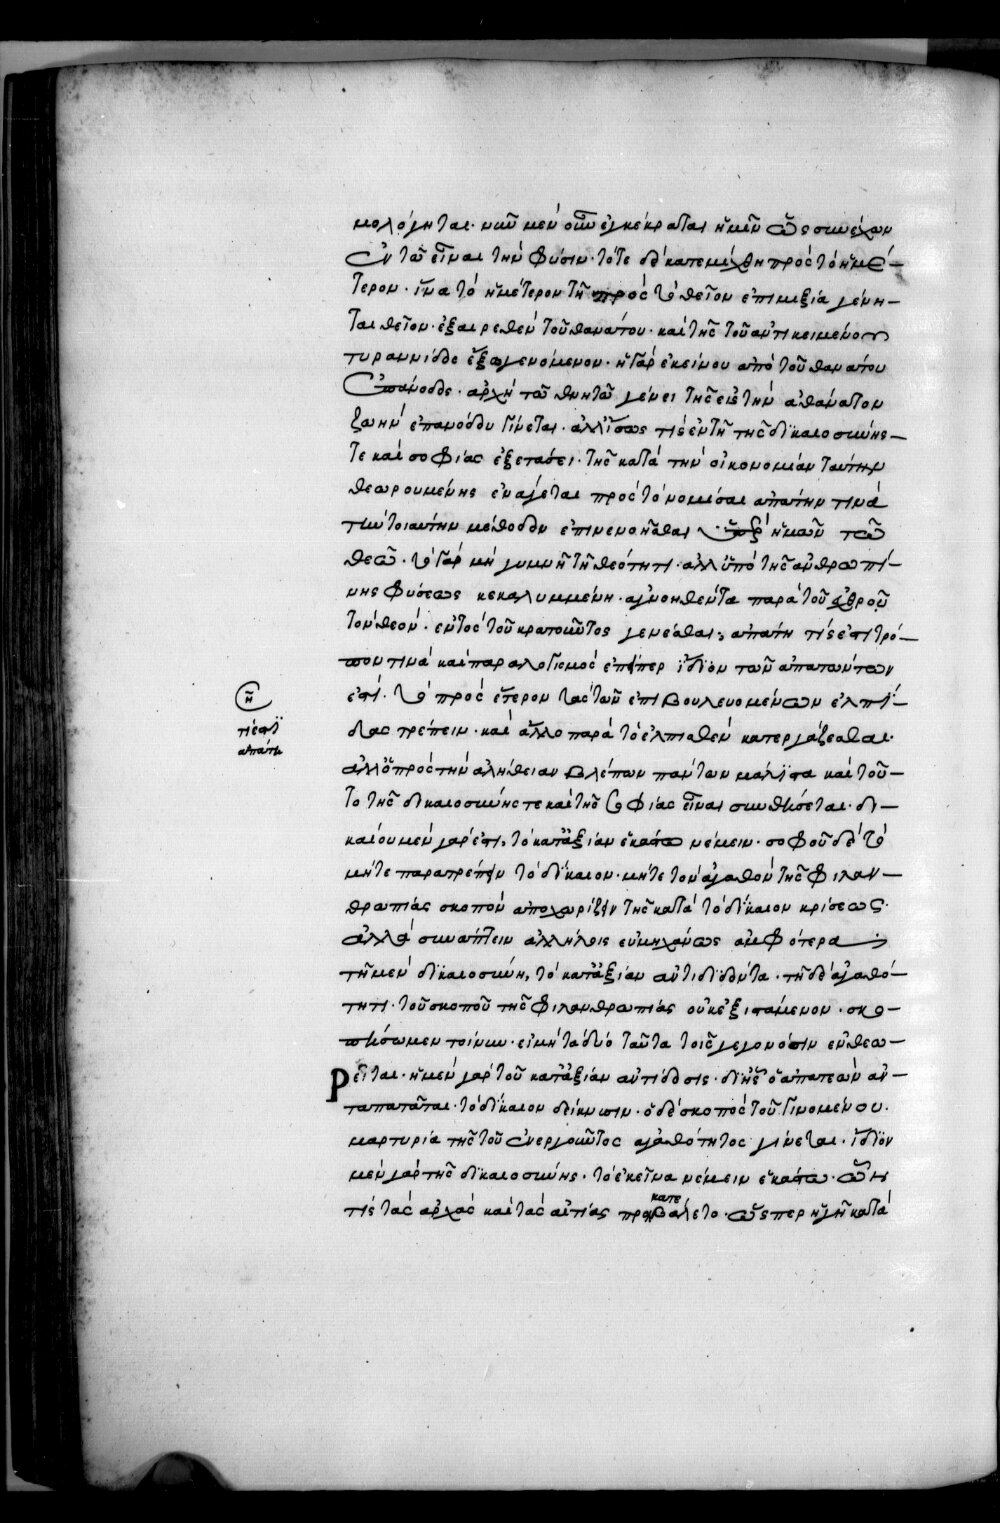 μολόγηται· νῦν μὲν οὖν ἐγκέκραται ἡμῖν ὡς συνέχων
ἐν τῶ εἶναι τὴν φύσιν· τότε δὲ κατεμίχθη πρὸς τὸ ἡμέ-
τερον· ἵνα τὸ ἡμέτερον τῆ πρὸς τὸ θεῖον ἐπιμιξία γένη-
ται θεῖον· ἐξαιρεθὲν τοῦ θανάτου· καὶ τῆς τοῦ ἀντικειμένου
τυραννίδος ἔξω γενόμενον· ἡ γὰρ ἐκείνου ἀπὸ τοῦ θανάτου
ἐπάνοδος· ἀρχὴ τῶ θνητῶ γένει τῆς εἰς τὴν ἀθάνατον
ζωὴν ἐπανόδου γίνεται· ἀλλ' ἴσως τίς ἐν τῆ τῆς δικαιοσύνης-
τε καὶ σοφίας ἐξετάσει· τῆς κατὰ τὴν οἰκονομίαν ταύτην
θεωρουμένης ἐνάγεται πρὸς τὸ νομίσαι ἀπάτην τινὰ
τὴν τοιαύτην μέθοδον ἐπινενοῆσθαι ὑπὲρ ἡμῶν τῶ
θεῶ· τὸ γὰρ μὴ γυμνῆ τῆ θεότητι· ἀλλ' ὑπὸ τῆς ἀνθρωπί-
νης φύσεως κεκαλυμμένη· ἀγνοηθέντα παρὰ τοῦ ἐχθροῦ
τὸν θεὸν· ἐντὸς τοῦ κρατοῦντος γενέσθαι, ἀπάτη τίς ἐστὶ τρό-
πον τινὰ καὶ παραλογισμὸς ἐπείπερ ἴδιον τῶν ἀπατώντων
ἐστὶ· τὸ πρὸς ἕτερον τὰς τῶν ἐπιβουλευομένων ἐλπί-
δας τρέπειν· καὶ ἄλλο παρὰ τὸ ἐλπισθὲν κατεργάζεσθαι·
ἀλλ' ὁ πρὸς τὴν ἀλήθειαν βλέπων πάντων μάλιστα καὶ τοῦ-
το τῆς δικαιοσύνης τε καὶ τῆς σοφίας εἶναι συνθήσεται· δι-
καίου μὲν γάρ ἐστι, τὸ κατἀξίαν ἑκάστω νέμειν· σοφοῦ δὲ τὸ
μήτε παρατρέπειν τὸ δίκαιον· μήτε τὸν ἀγαθὸν τῆς φιλαν-
θρωπίας σκοπὸν ἀποχωρίζειν τῆς κατὰ τὸ δίκαιον κρίσεως·
ἀλλὰ συνάπτειν ἀλλήλοις εὐμηχάνως ἀμφότερα
τῆ μὲν δικαιοσύνη, τὸ κατἀξίαν ἀντιδιδόντα· τῆ δὲ ἀγαθό-
τητι· τοῦ σκοποῦ τῆς φιλανθρωπίας οὐκ ἐξιστάμενον· σκο-
πήσωμεν τοίνυν· εἰ μὴ τὰ δύο ταῦτα τοῖς γεγονόσιν ἐνθεω-
ρεῖται· ἡ μὲν γὰρ τοῦ κατἀξίαν ἀντίδοσις· δι' ἧς ὁ ἀπατεὼν ἀν-
ταπατᾶται· τὸ δίκαιον δείκνυσιν· ὁ δὲ σκοπὸς τοῦ γινομένου·
μαρτυρία τῆς τοῦ ἐνεργοῦντος ἀγαθότητος γίνεται· ἴδιον
μὲν γὰρ τῆς δικαιοσύνης· τὸ ἐκεῖνα νέμειν ἑκάστω· ὧν
τίς τὰς ἀρχὰς καὶ τὰς αἰτίας προκατεβάλετο· ὥσπερ ἡ γῆ κατὰ
ση
τί ἐστϊ
ἀπάτη